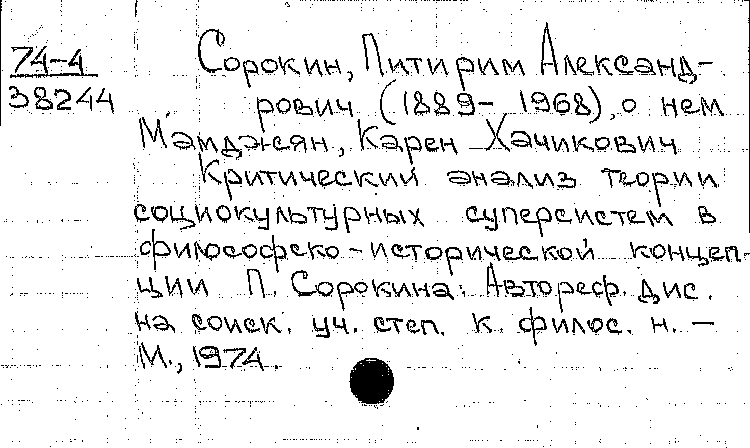 74-4
38244
Сорокин, Питирим Александ-
рович (1889- 1968), о нем
Мамджян, Карен Хачикович
Критический анализ теории
социокультурных суперсистем в
философско-исторической концеп-
ции П. Сорокина. Автореф. дис.
на соиск. уч. степ. к. филос. н. —
М., 1974.